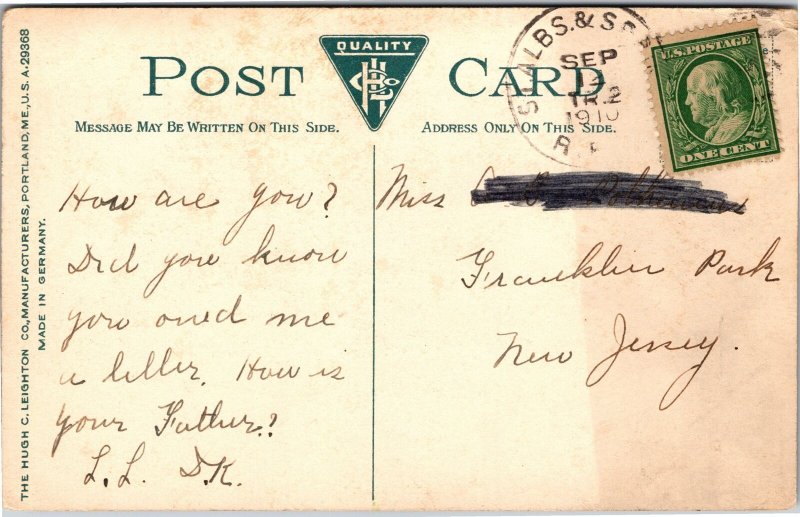 THE HUGH C. LEIGHTON CO., MANUFACTURERS, PORTLAND, ME., U.S.A. 29368
MADE IN GERMANY.
POST CARD
QUALITY
MESSAGE MAY BE WRITTEN ON THIS SIDE.
ADDRESS ONLY ON THIS SIDE.
ST. ALBS. &
SEP
TR. 2
1910
R.P.
U.S. POSTAGE
ONE CENT
How are you?
Did you know
you owed me
a letter. How is
your Father?
L.L. D.K.
Miss
Franklin Park
New Jersey.